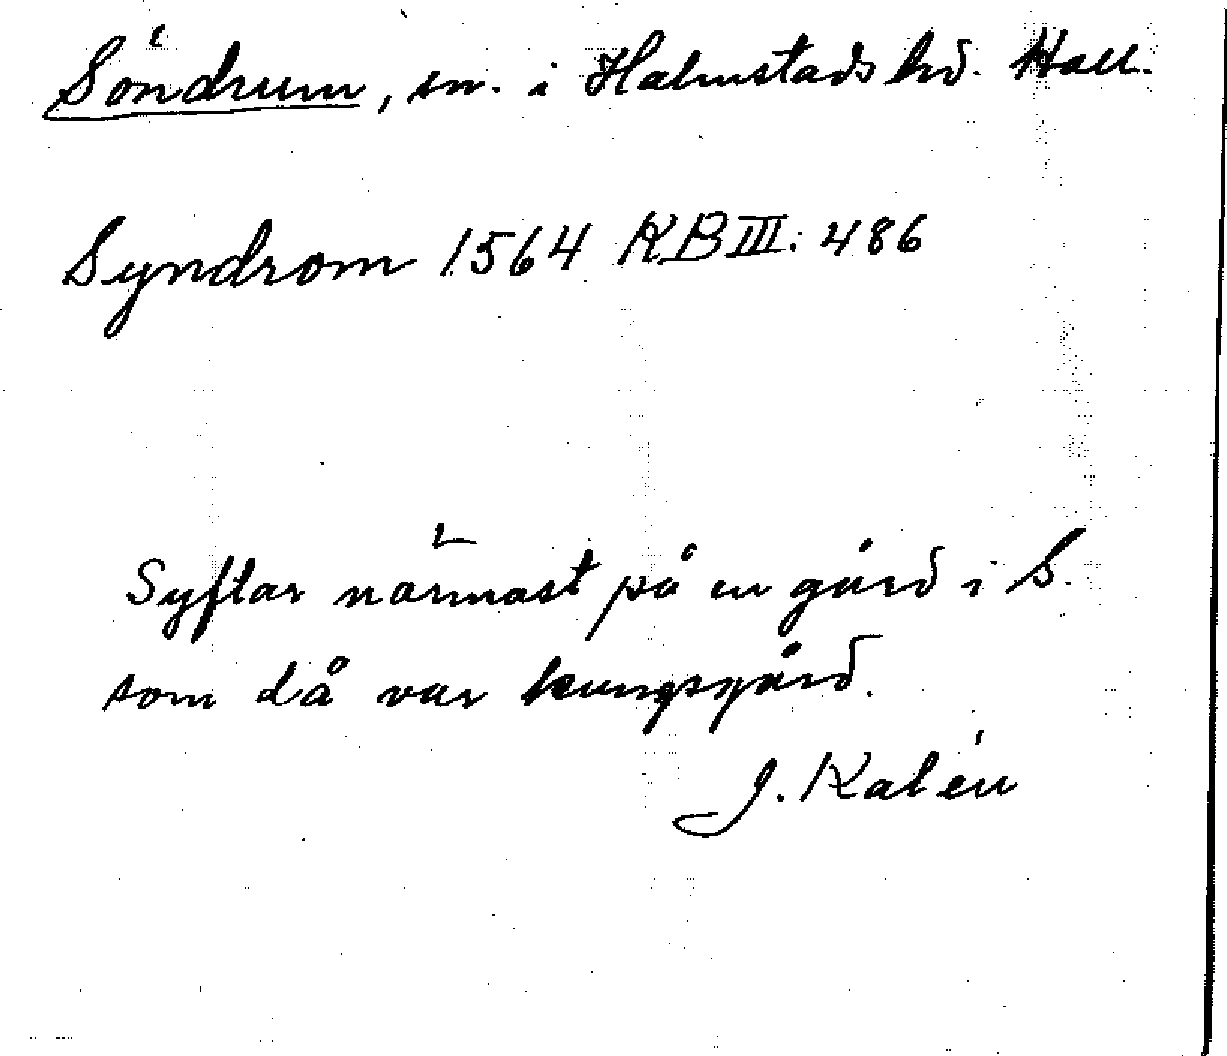 Söndrum, sn. i Halmstads hd. Hall.
Syndrom 1564 KB III: 486
Syftar närmast på en gård i S.
som då var kungsgård.
J. Kalén